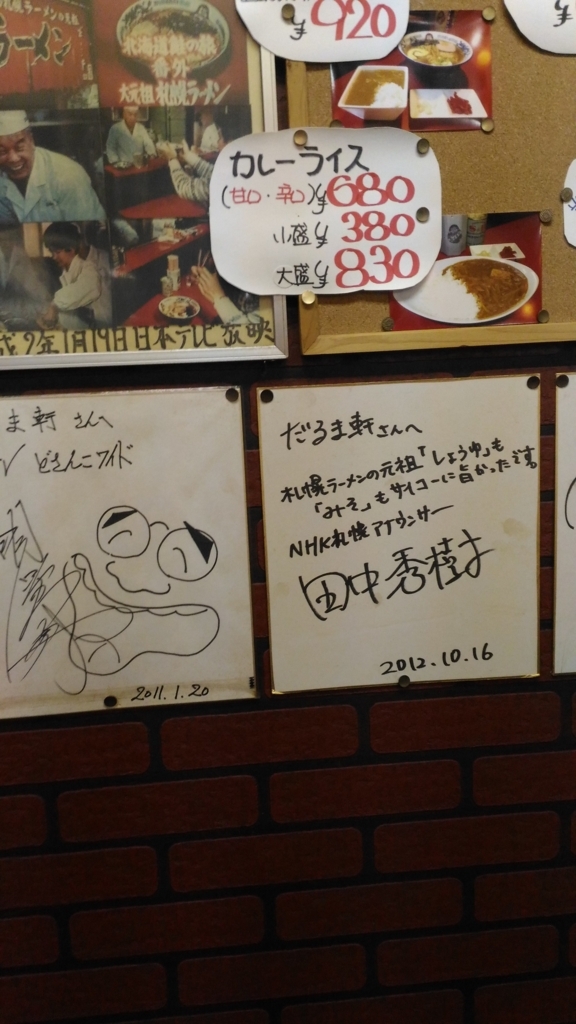 ¥920
¥
札幌ラーメンの元祖
ラーメン
北海道鮭の旅
番外
大元祖札幌ラーメン
カレーライス
(甘口・辛口)¥680
小盛¥380
大盛¥830
成9年1月19日日本テレビ放映
ま軒さんへ
どさんこワイド
2011.1.20
だるま軒さんへ
札幌ラーメンの元祖「しょうゆ」も
「みそ」もサイコーに旨かったです
NHK札幌アナウンサー
田中秀樹
2012.10.16